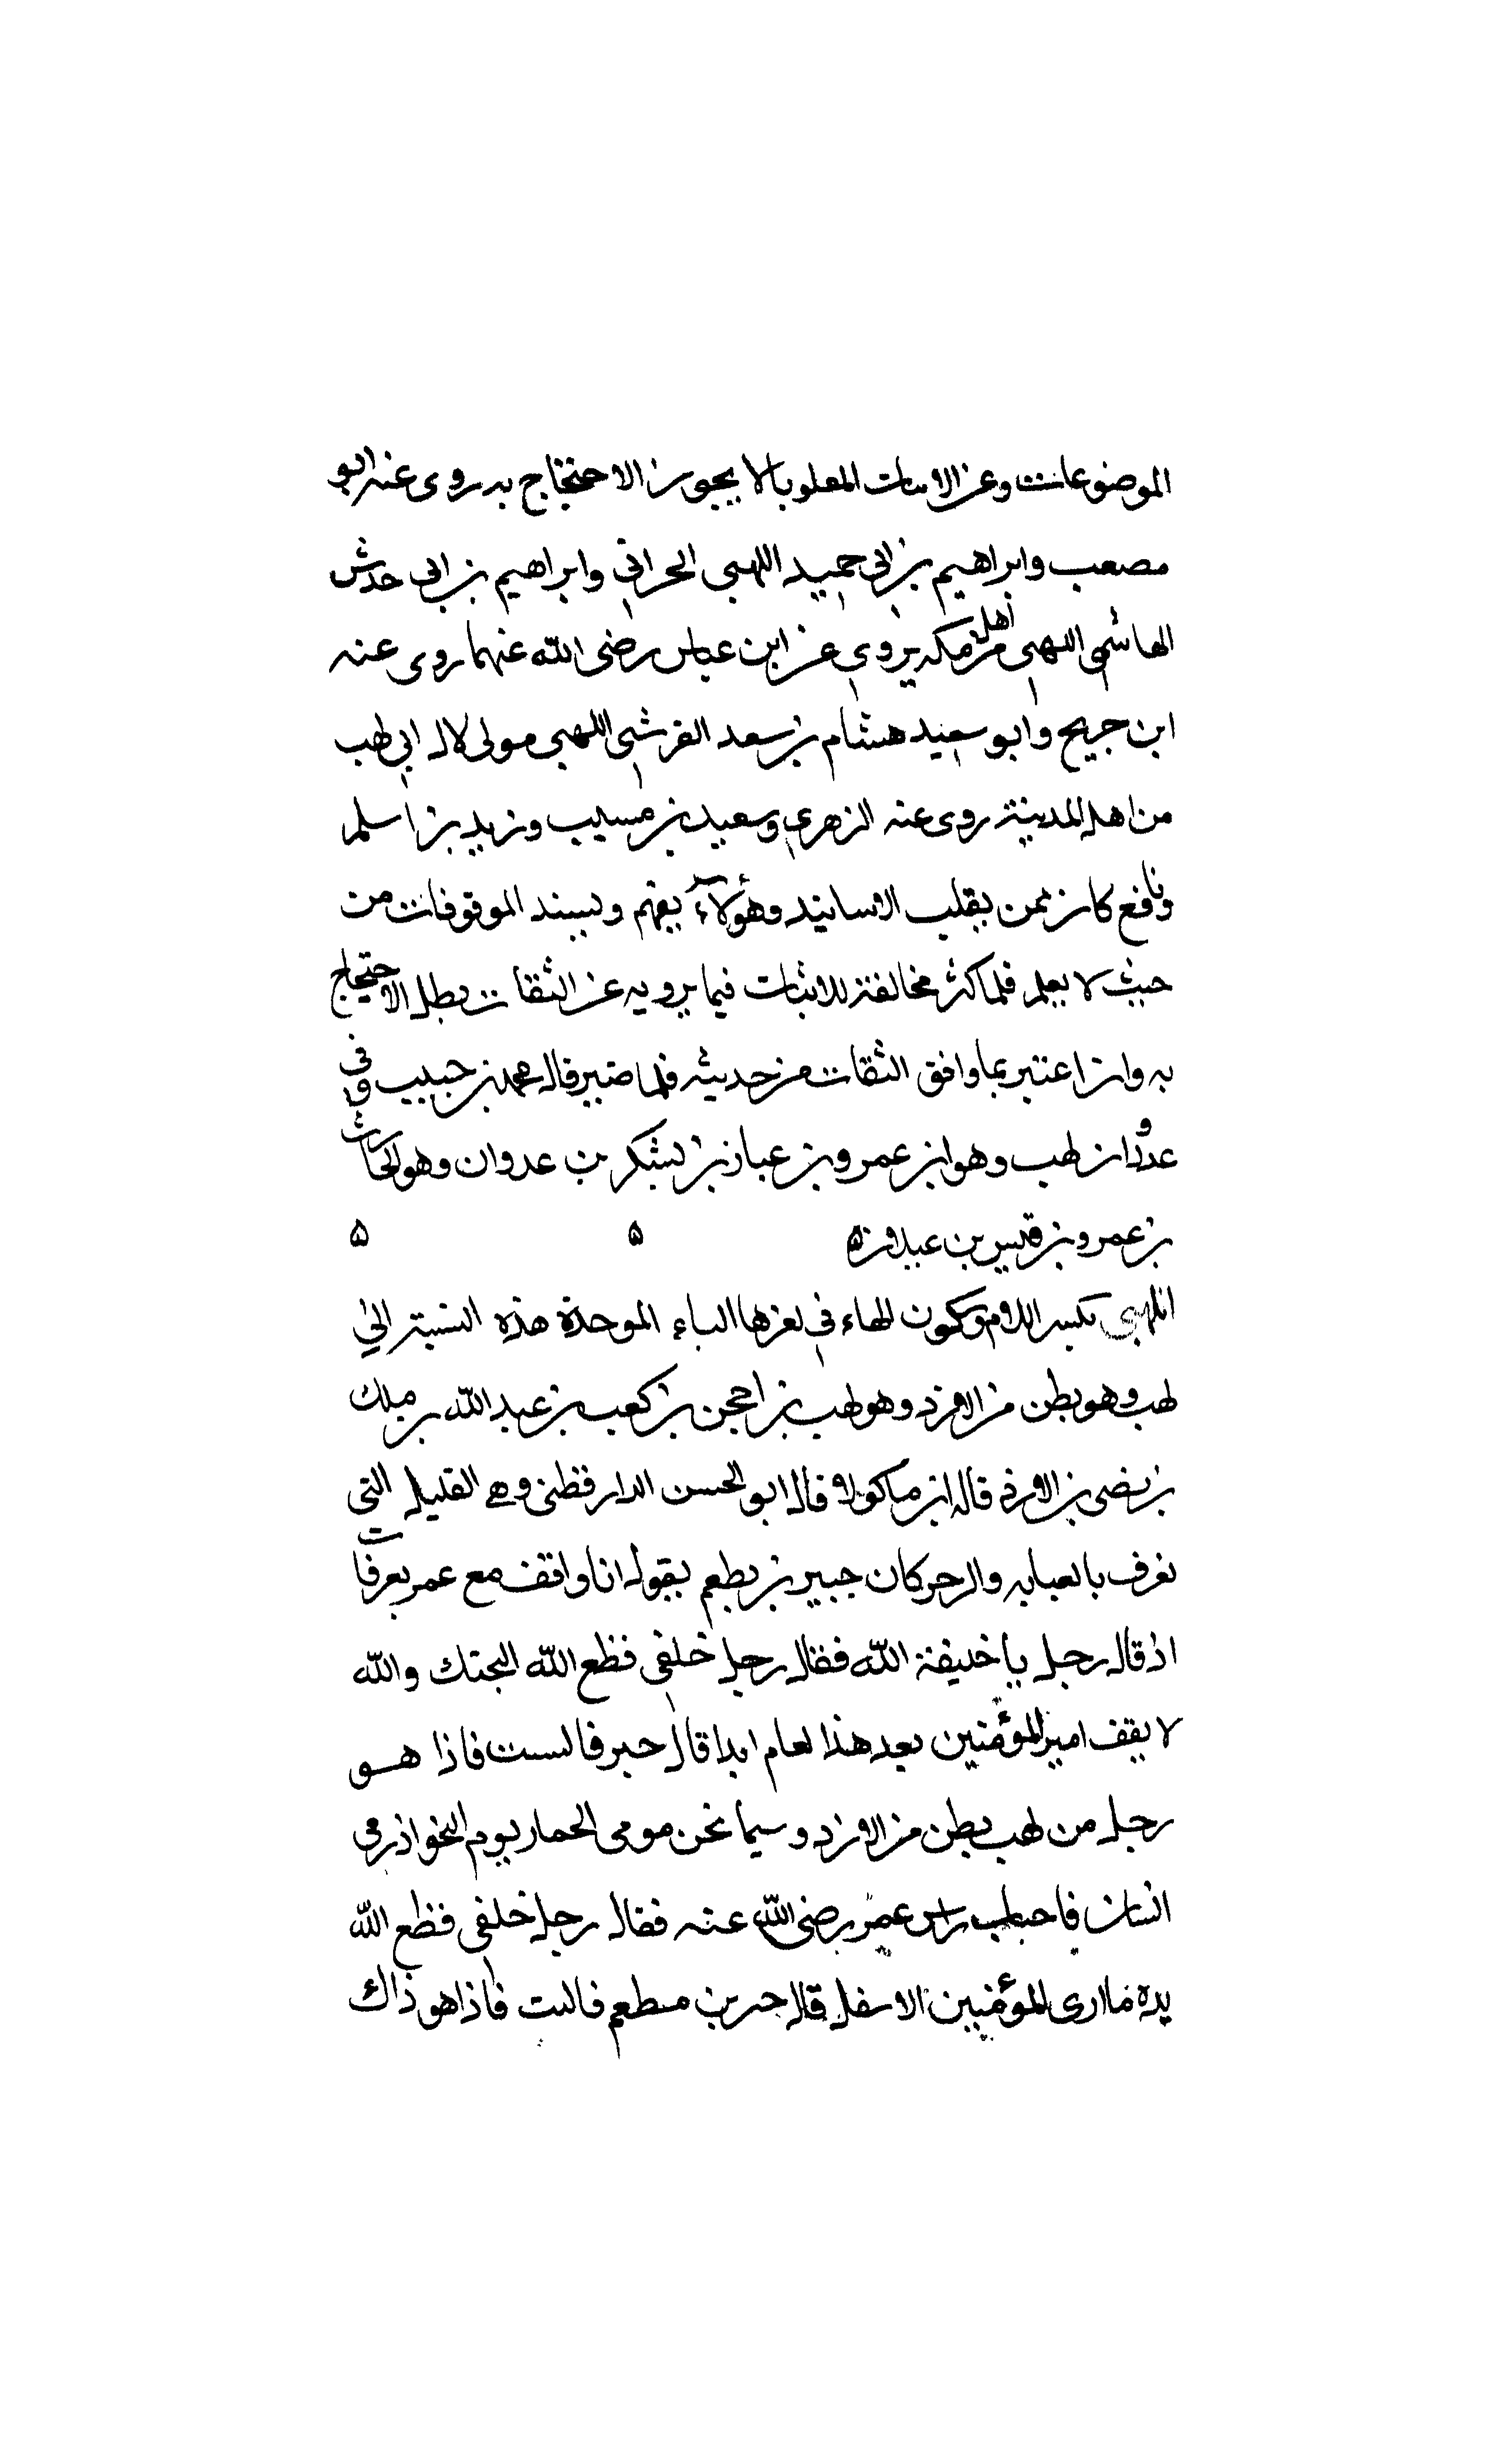 الموضوعات وعن الاثبات المعلوبا لا يجوز الاحتجاج به روى عنه ابو
مصعب وابراهيم بن ابى حميد اللهبى الحرانى وابراهيم بن ابى خداش
الهاشمى اللهبى من اهل مكه يروى عن ابن عباس رضى الله عنهما روى عنه
ابن جريج وابو سعيد هشام بن سعد القرشى اللهبى مولى لال ابى لهب
من اهل المدينة روى عنه الزهرى وسعيد بن مسيب وزيد بن اسلم
ونافع كان ممن يقلب الاسانيد وهؤلاء يفهم ويسند الموقوفات من
حيث لا يعلم فلما كثر مخالفته للاثبات فيما يرويه عن الثقات بطل الاحتجاج
به وان اعتبر بما وافق الثقات من حديثه فلا ضير قال محمد بن حبيب وفى
عدوان لهب وهو ابن عمرو بن عباذ بن يشكر بن عدوان وهو الحارث
بن عمرو بن قيس بن عيلان ۵ ۵ ۵
اللهبى بكسر اللام وسكون الهاء فى اخرها الباء الموحدة هذه النسبة الى
لهب وهو بطن من الازد وهو لهب بن احجن بن كعب بن عبد الله بن ملك
بن نضى بن الازد قاله ابن ماكولا قال ابو الحسن الدارقطنى وهى القبيله التى
تعرف بالعيابه والزجر كان جبير بن مطعم يقول انا واقف مع عمر بعرفات
اذ قال رجل يا خليفة الله فقال رجل خلفى قطع الله لهجتك والله
لا يقف امير المؤمنين بعد هذا لعام ابدا قال جبير فالتست فاذا هو
رجل من لهب بطن من الازد وسيما نحن مومى الحمار يوم النحر اذ رمى
انسان فاصاب راس عمر رضى الله عنه فقال رجل خلفى قطع الله
يده ما ارى المؤمنين الا سفل قال جبير بن مطعم فالتت فاذا هو ذاك